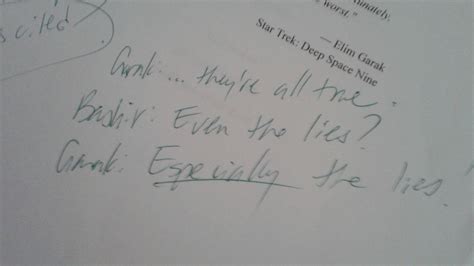 worst."
— Elim Garak
Star Trek: Deep Space Nine
cited
Garak: ... they're all true.
Bashir: Even the lies?
Garak: Especially the lies!